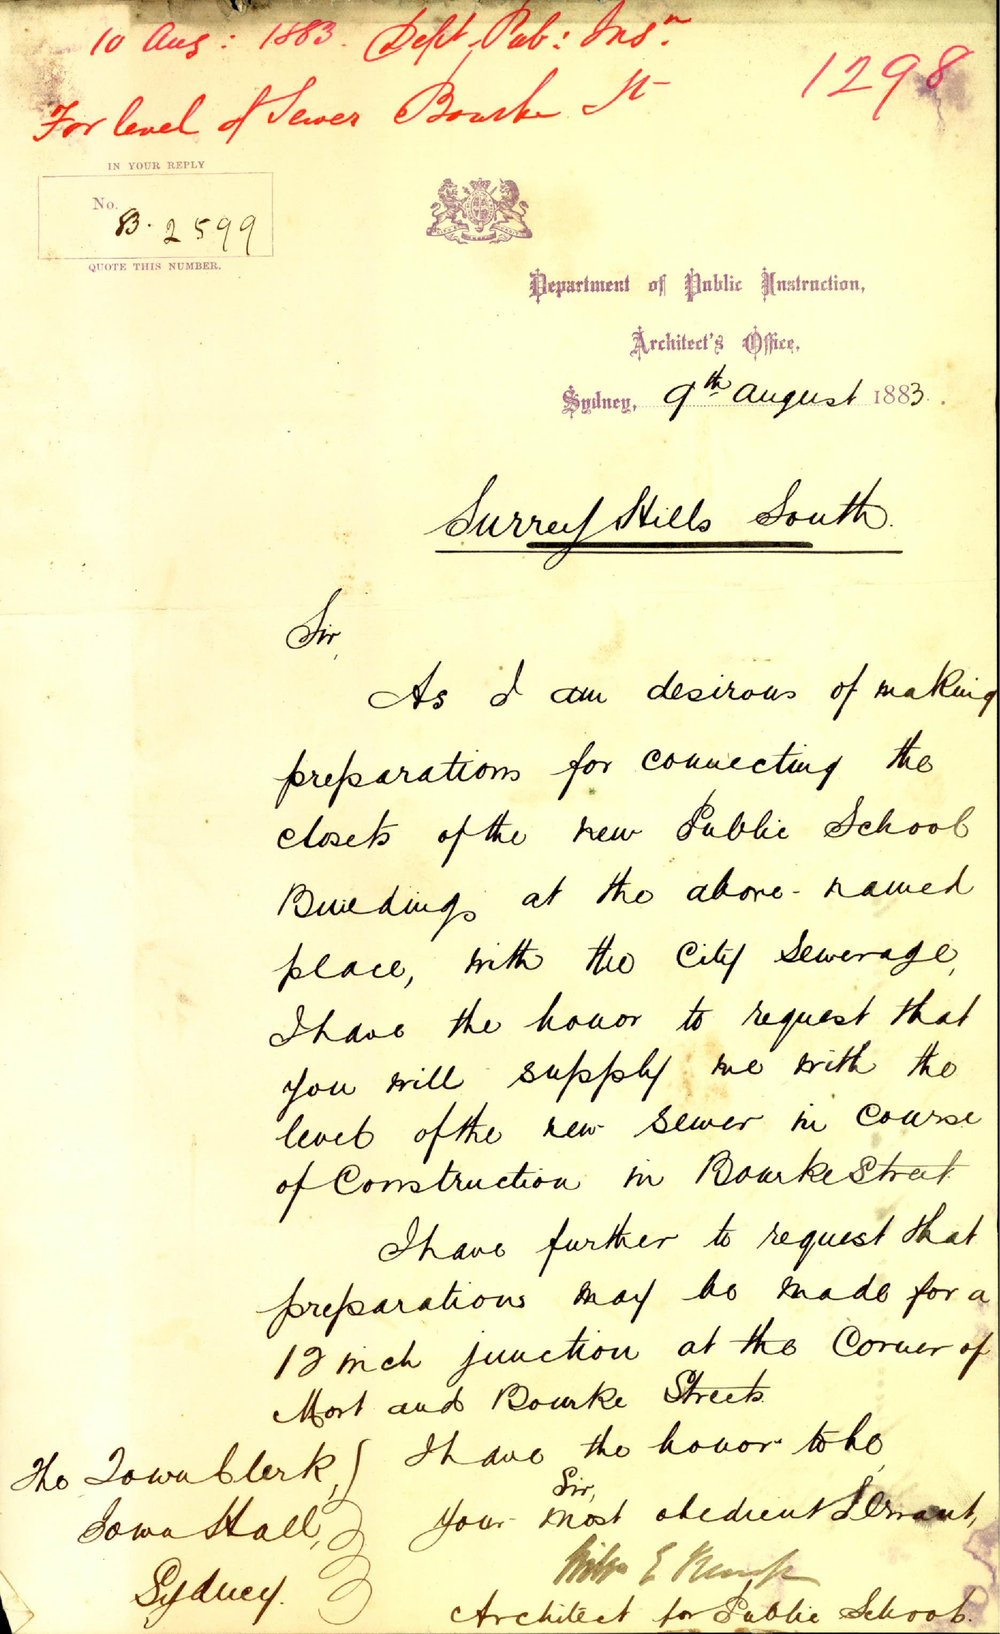 10 Aug: 1883. Dept. Pub: Insn.
1298
For level of Sewer Bourke St
IN YOUR REPLY
No. 83. 2599
QUOTE THIS NUMBER.
Department of Public Instruction,
Architect's Office,
Sydney, 9th August 1883.
Surrey Hills South.
Sir,
As I am desirous of making
preparations for connecting the
closets of the new Public School
Buildings at the above-named
place, with the City Sewerage,
I have the honor to request that
you will supply me with the
level of the new sewer in course
of Construction in Bourke Street
I have further to request that
preparations may be made for a
12 inch junction at the Corner of
Mort and Bourke Streets
I have the honor to be,
Sir,
Your most obedient Servant,
E Kemp
Architect for Public Schools.
The Town Clerk,
Town Hall,
Sydney.